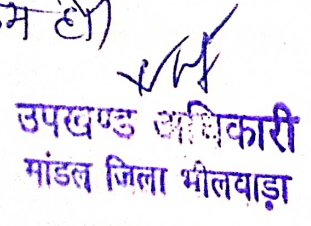 म हो)
उपखण्ड अधिकारी
मांडल जिला भीलवाड़ा